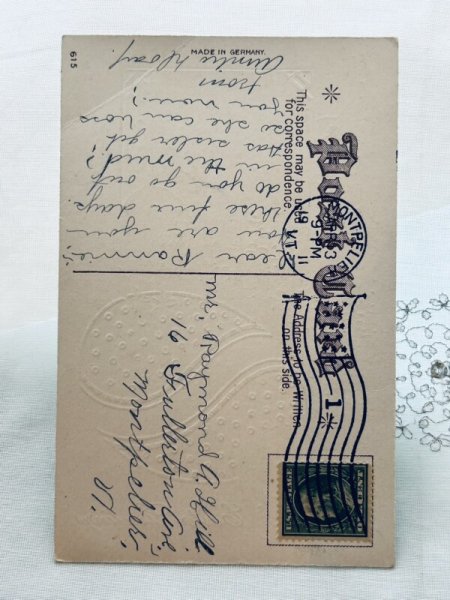 615
MADE IN GERMANY.
Post Card
This space may be used
for correspondence.
The Address to be Written
on this side.
MONTPELIER
3
9-PM
19 11
VT.
1
U.S. POSTAGE
Dear
are you
these fine days.
do you go out
in the mud?
Has sister get
so she can boss
you now?
from
Auntie
Mr. Raymond A. Hill
16 Fullerton
Montpelier
Vt.